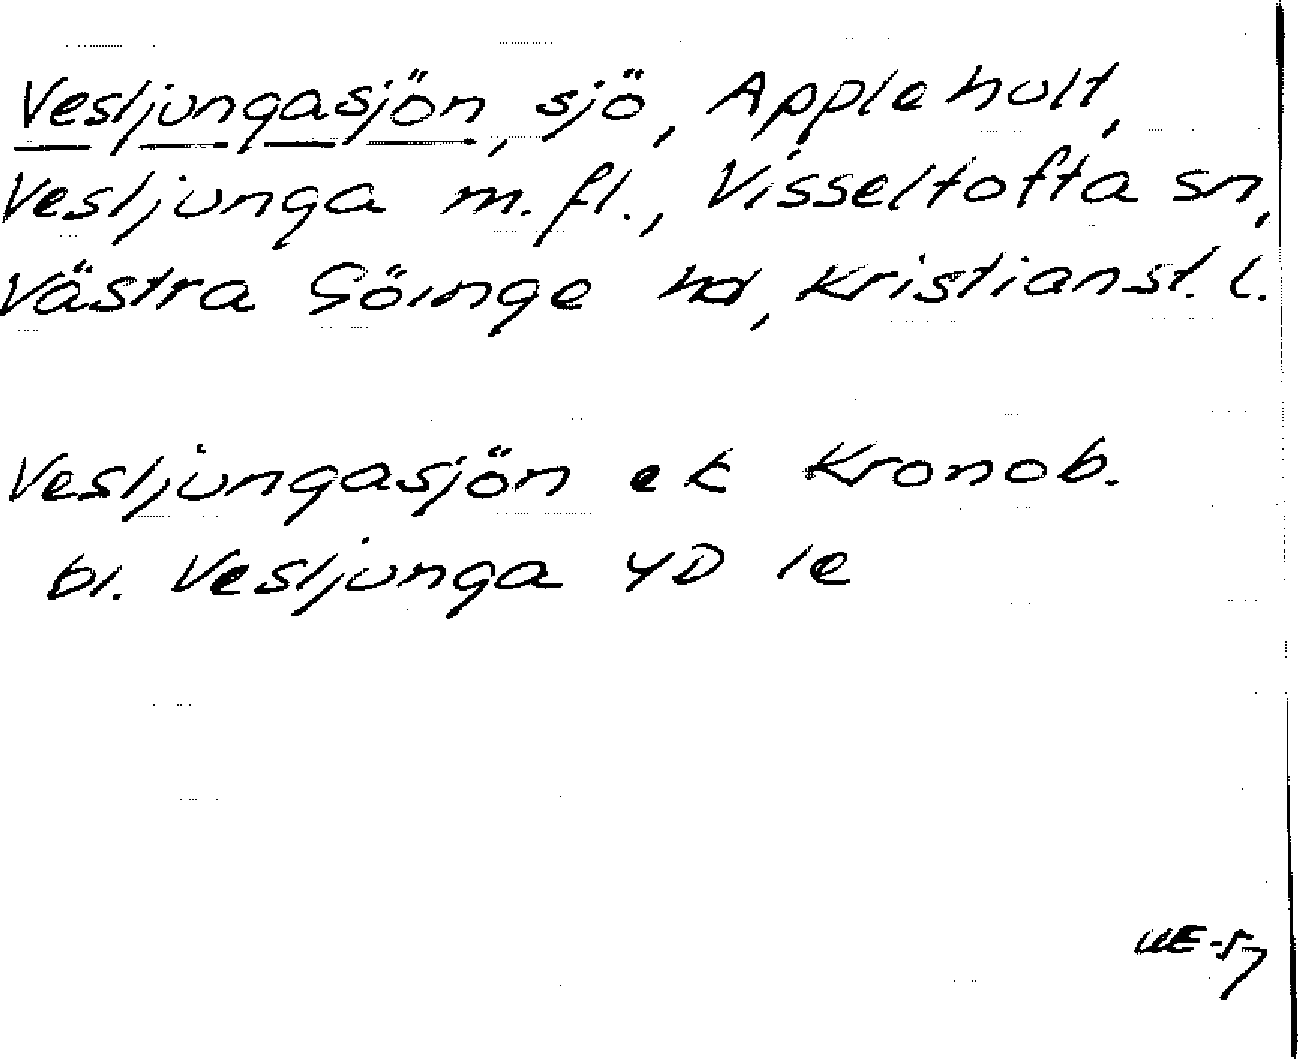 Vesljungasjön, sjö, Applehult,
Vesljunga m.fl., Visseltofta sn,
Västra Göinge hd, Kristianst. l.
Vesljungasjön ek Kronob.
bl. Vesljunga 4D 1e
UE-57